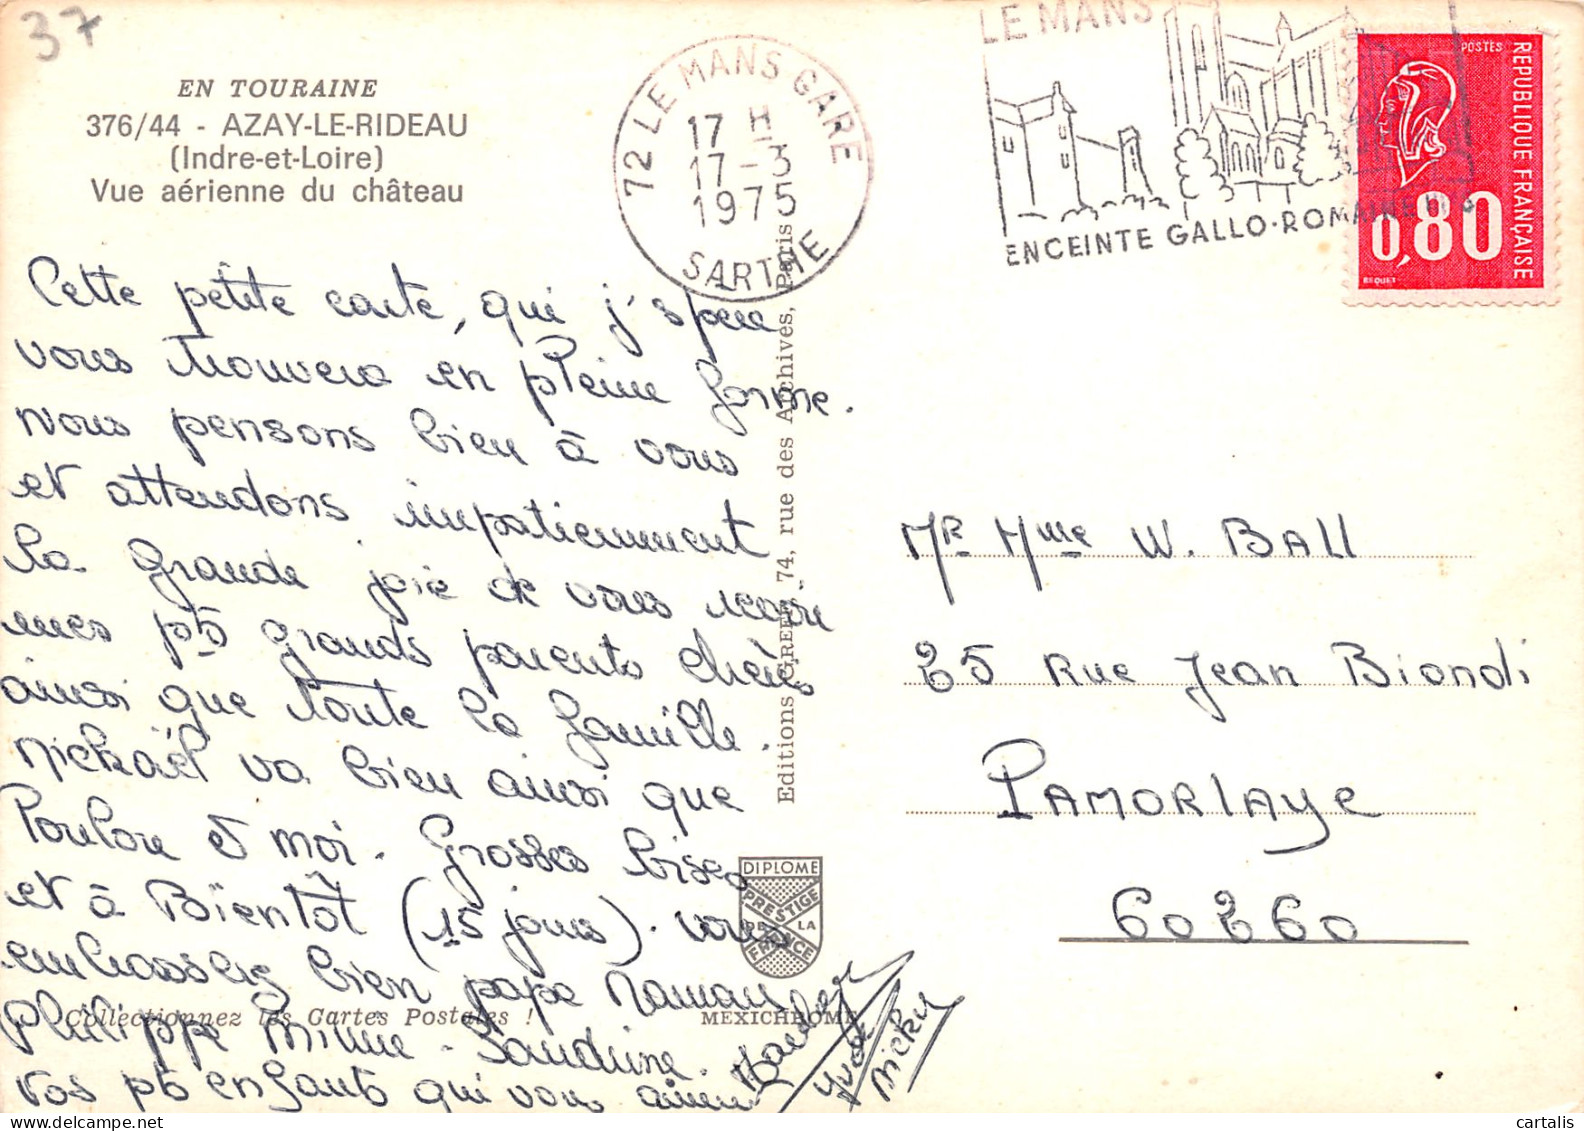 37
EN TOURAINE
376/44 - AZAY-LE-RIDEAU
(Indre-et-Loire)
Vue aérienne du château
72 LE MANS GARE
17 H
17-3
1975
SARTHE
LE MANS
ENCEINTE GALLO-ROMAINE
POSTES
REPUBLIQUE FRANÇAISE
0,80
BEQUET
Cette petite carte, qui j'spere
vous trouvera en pleine forme.
Nous pensons bien à vous
et attendons impatiemment
la grande joie de vous revoir
mes pts grands parents chéris
ainsi que toute la famille.
Mickaël va bien ainsi que
Poulou et moi. Grosses bises
et à Bientôt (15 jours). vous
embrasserez bien papa Maman
Philippe Minne - Sandrine.
Vos pts enfants qui vous aiment
Yvon
Micky
Editions GREFF, 74, rue des Archives, Paris
DIPLOME
PRESTIGE
DE LA
FRANCE
Collectionnez les Cartes Postales !
MEXICHROME
MR Mme W. BALL
25 Rue Jean Biondi
LAMORLAYE
60260
cartalis